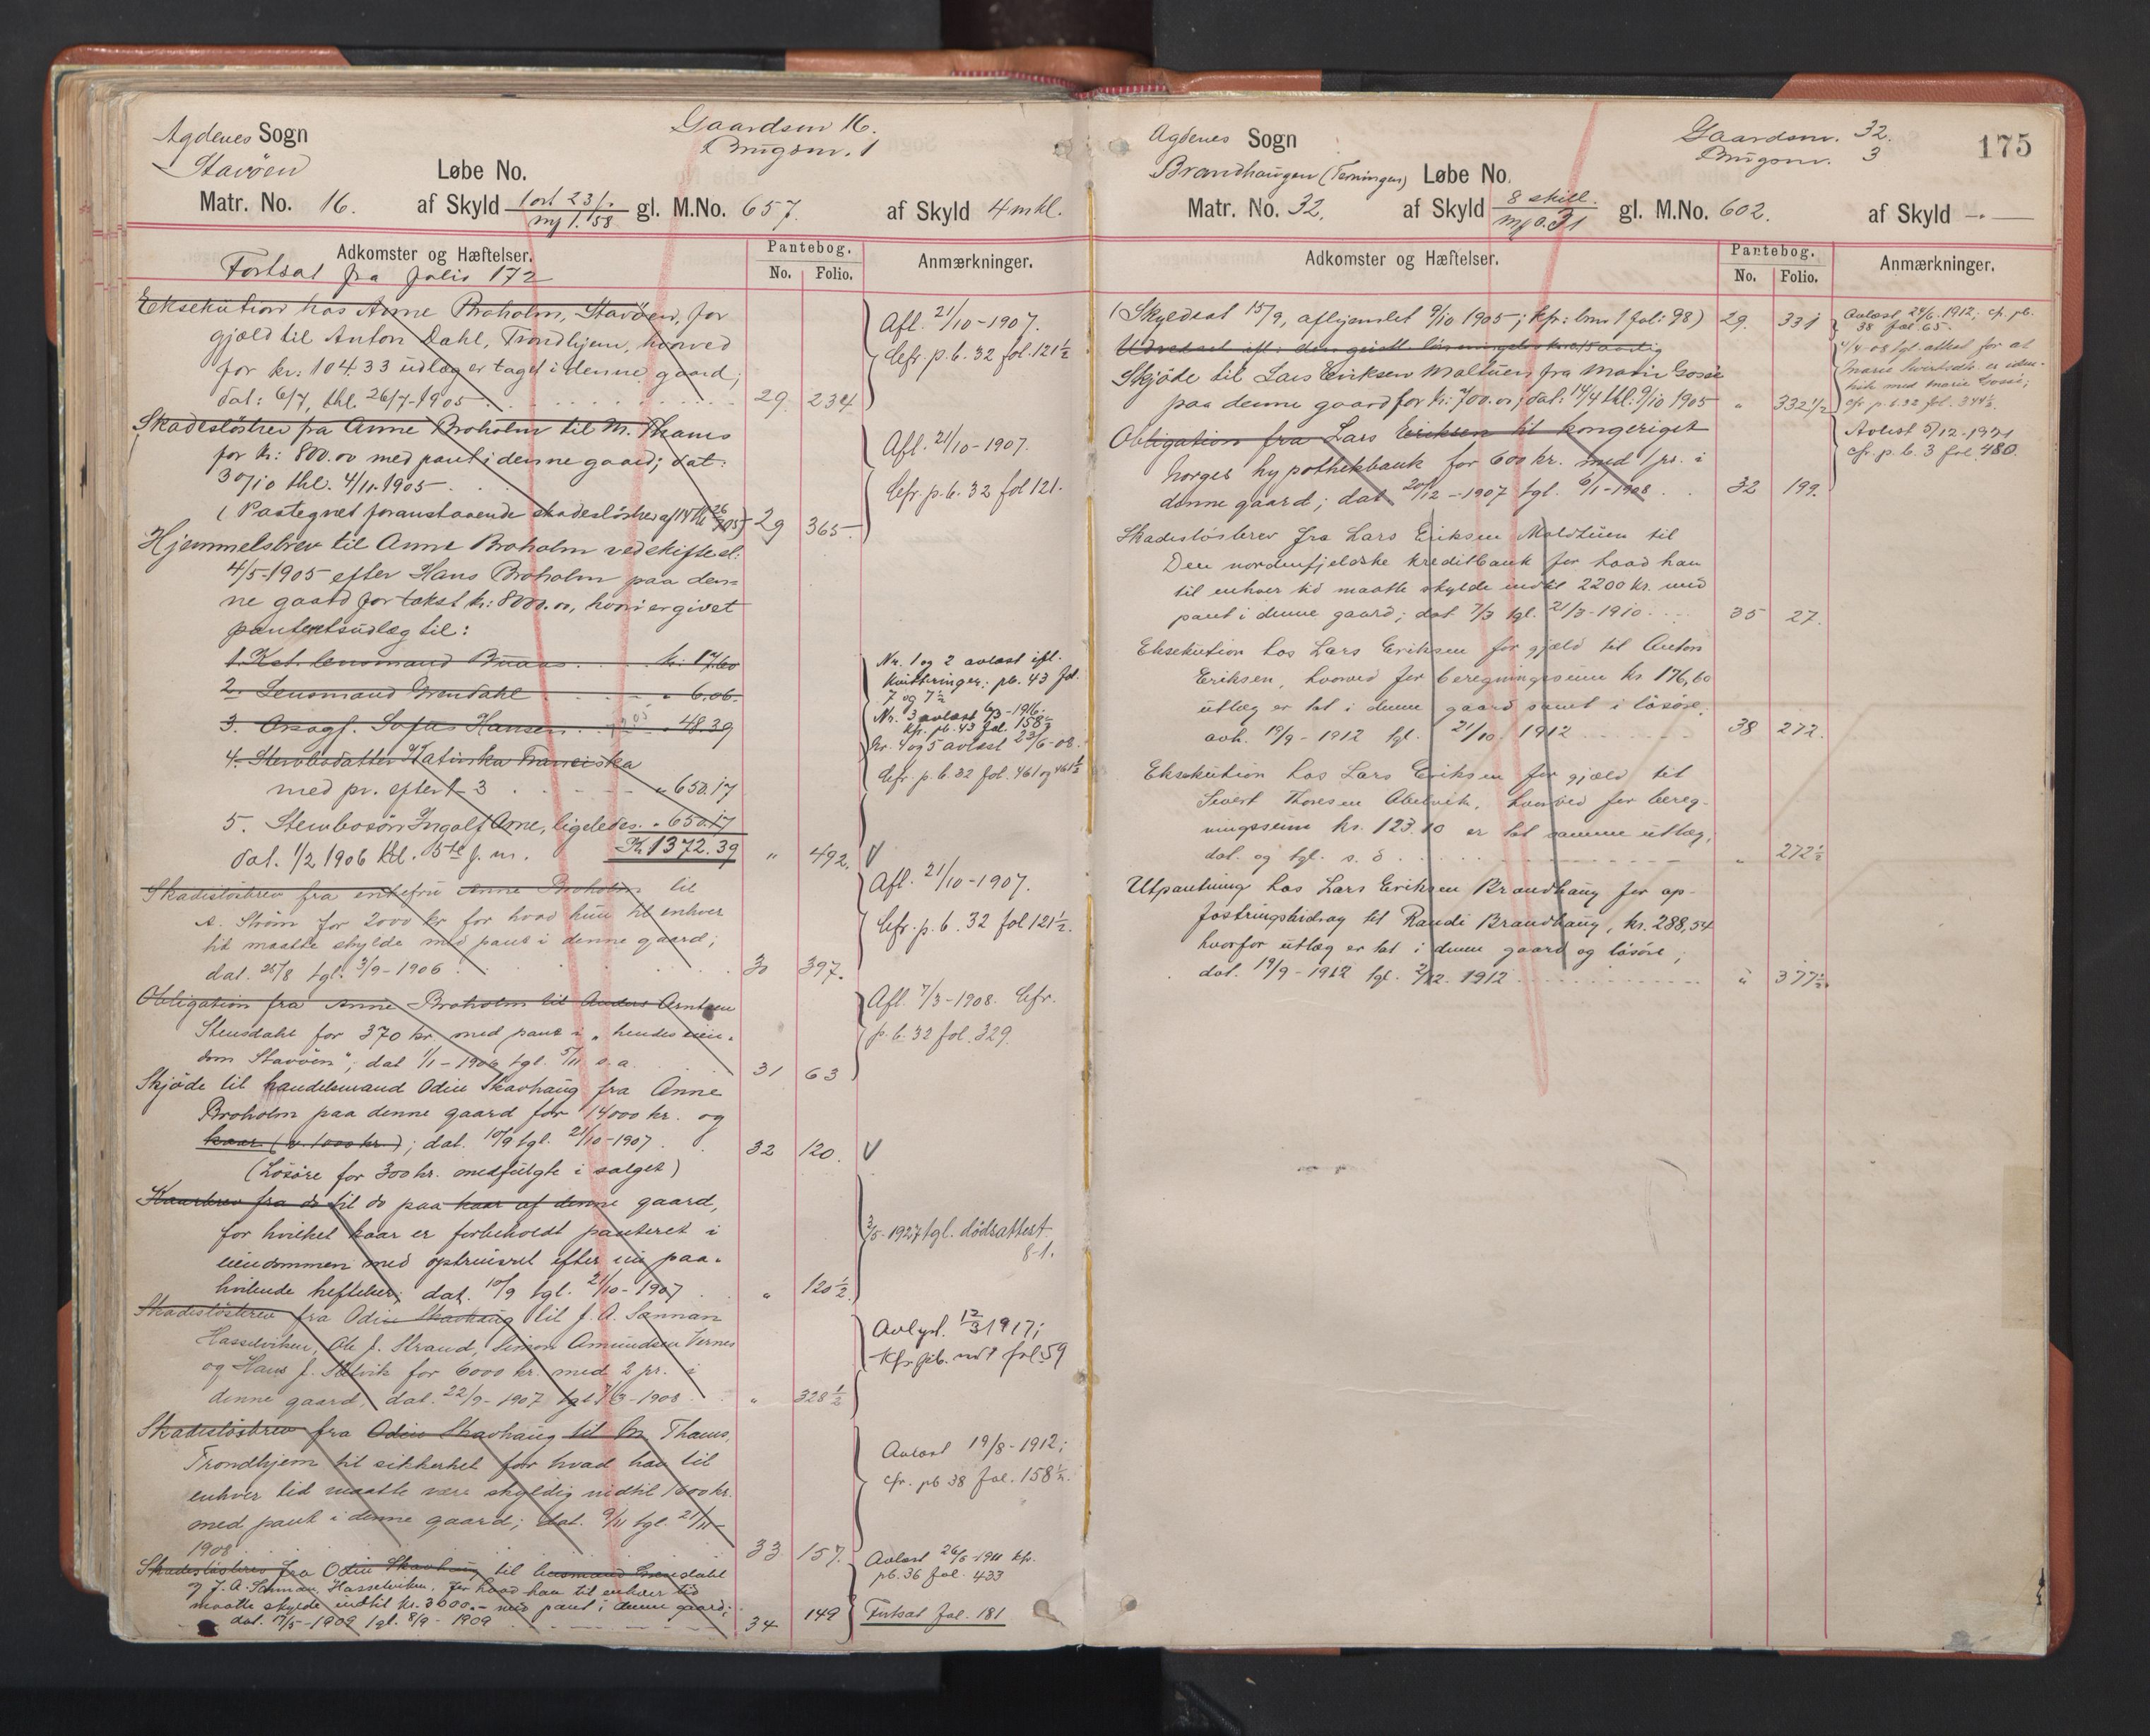 Agdenes Sogn
Gaardsnr 16.
Stavöen
Brugsnr. 1
Løbe No.
Matr. No. 16. af Skyld 1 ort 23 / mj 1.58 gl. M.No. 657. af Skyld 4 mkl.
Adkomster og Hæftelser.
Pantebog.
No. Folio.
Anmærkninger.
Fortsat fra folio 172
Eksekution hos Anne Broholm, Stavöen, for
gjæld til Anton Dahl, Trondhjem, hvorved
for kr: 104.33 udlæg er taget i denne gaard;
dat: 6/7, thl. 26/7-1905 29. 234
Afl. 21/10-1907.
Cfr. p.b. 32 fol. 121½
Skadeslösbrev fra Anne Broholm til M. Thams
for kr: 800.00 med pant i denne gaard; dat:
30/10 thl. 4/11-1905
(Paategnet foranstaaende skadeslösbrev 29 365
Afl. 21/10-1907.
Cfr. p.b. 32 fol 121.
Hjemmelsbrev til Anne Broholm ved skiftesl.
4/5-1905 efter Hans Broholm paa den-
ne gaard for takst kr: 8000.00, hvori er givet
panteretsudlæg til:
1. Kst. lensmand Buaas kr. 17.60
2. Lensmand Grendahl " 6.06
3. Sofus Hansen " 48.39
4. Stervbodatter Katinka Franciska
med pr. efter 1-3 " 650.17
5. Stervbosön Ingolf Arne, ligeledes " 650.17
Kr. 1372.39
dat. 1/2 1906 thl. 5te f. m. " 492.
Nr. 1 og 2 avlæst ifl.
kvitteringer: pb. 43 fol.
7 og 7½
Nr. 3 avlæst 6/3-1916.
kfr. pb. 43 fol. 158½
Nr. 4 og 5 avlæst 23/6-08.
Cfr. p.b. 32 fol. 461 og 461½
V
Skadeslösbrev fra enkefru Anne Broholm til
A. Ström for 2000 kr for hvad hun til enhver
tid maatte skylde med pant i denne gaard;
dat. 28/8 tgl. 3/9-1906 30 397.
Afl. 21/10-1907.
Cfr. p.b. 32 fol 121½.
Obligation fra Anne Broholm til Anders Arntsen
Stensdahl for 370 kr. med pant i "hendes eien-
dom Stavöen"; dat 1/1-1906 tgl. 5/11 s.a. 31 63
Afl. 7/3-1908. Cfr.
p.b. 32 fol. 329.
Skjöde til handelsmand Odin Skavhaug fra Anne
Broholm paa denne gaard for 14000 kr. og
kaar (v. 1000 kr.); dat. 10/9 tgl. 21/10-1907 32 120. V
(Lösöre for 300 kr. medfulgte i salget)
Kaarbrev fra do til do paa kaar af denne gaard,
for hvilket kaar er forbeholdt panteret i
eiendommen med optrinsret efter nu paa-
hvilende heftelser; dat. 10/9 tgl. 21/10-1907 " 120½.
3/5-1927 tgl. dödsattest
8-1.
Skadeslösbrev fra Odin Skavhaug til J. A. Sannan
Hasselviken, Ole J. Strand, Simon Amundsen Vernes
og Hans J. Selvik for 6000 kr. med 2 pr. i
denne gaard, dat. 22/9-1907 tgl 7/3-1908 " 328½
Avlyst. 12/3 1917;
kfr pb. nr 1 fol. 59
Skadeslösbrev fra Odin Skavhaug til M. Thams,
Trondhjem til sikkerhet for hvad han til
enhver tid maatte være skyldig indtil 1600 kr.
med pant i denne gaard; dat. 9/11 tgl. 21/11
1908 33 157.
Avlæst 19/8-1912;
cfr. pb 38 fol. 158½.
Skadeslösbrev fra Odin Skavhaug til lensmand Grendahl
og J. A. Sannan, Hasselviken, for hvad han til enhver tid
maatte skylde indtil kr. 3000.- med pant i denne gaard;
dat. 17/5-1909 tgl. 8/9-1909 34 149
Avlæst 26/5-1911 kfr.
pb. 36 fol. 433
Fortsat fol. 181
175
Agdenes Sogn
Gaardsnr. 32.
Brandhaugen (Terningen) Løbe No.
Brugsnr. 3
Matr. No. 32. af Skyld 8 skill. / mj 0.31 gl. M.No. 602. af Skyld -.—
Adkomster og Hæftelser.
Pantebog.
No. Folio.
Anmærkninger.
(Skyldsat 15/9, afhjemlet 9/10 1905; kfr: lnr 1 fol: 98) 29. 331
Skjöde til Lars Eriksen Moltuen fra Marie Gosse
paa denne gaard for kr: 700.00; dat: 14/4 thl: 9/10 1905 " 332½
Avlæst, 24/6. 1912; cfr. pb.
38 fol. 65.
4/4-08 tgl. attest for at
Marie Sivertsdtr. er iden-
tisk med Marie Gosse;
cfr. p.b. 32 fol. 344½.
Obligation fra Lars Eriksen til Kongeriget
Norges hypothekbank for 600 kr. med 1 pr. i
denne gaard; dat 20/12-1907 tgl. 6/1-1908 32 199.
Avlest 5/12-1921
cfr. p.b. 3 fol. 480.
Skadeslösbrev fra Lars Eriksen Moldtuen til
Den nordenfjeldske kreditbank for hvad han
til enhver tid maatte skylde indtil 2200 kr. med
pant i denne gaard; dat 7/3 tgl. 21/3-1910 35 27.
Eksekution hos Lars Eriksen for gjæld til Anton
Eriksen, hvorved for beregningssum kr. 176,60
utlæg er tat i denne gaard samt i lösöre;
avh. 19/9-1912 tgl. 21/10. 1912 38 272.
Eksekution hos Lars Eriksen for gjæld til
Sivert Thoresen Abelvik, hvorved for bereg-
ningssum kr. 123.10 er tat samme utlæg,
dat. og tgl. s. d " 272½
Utpantning hos Lars Eriksen Brandhaug for op-
fostringsbidrag til Randi Brandhaug, kr. 288,54
hvorfor utlæg er tat i denne gaard og lösöre;
dat. 19/9-1912 tgl. 2/12. 1912 " 377½